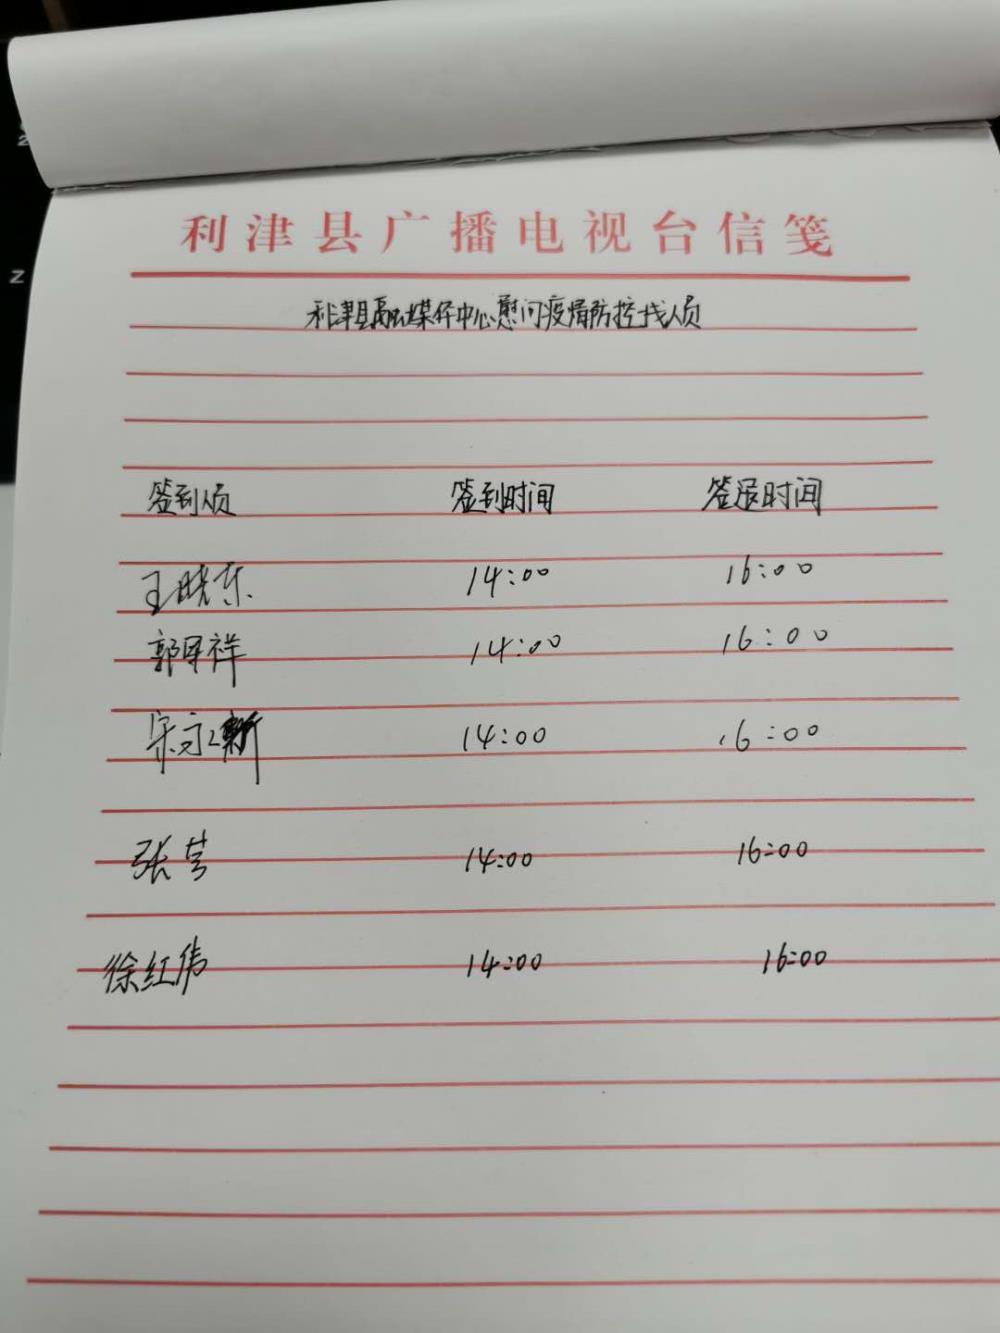 利津县广播电视台信笺
利津县融媒体中心慰问疫情防控人员
签到人员 签到时间 签退时间
王晓东 14:00 16:00
郭军祥 14:00 16:00
宋立新 14:00 16:00
张芸 14:00 16:00
徐红伟 14:00 16:00